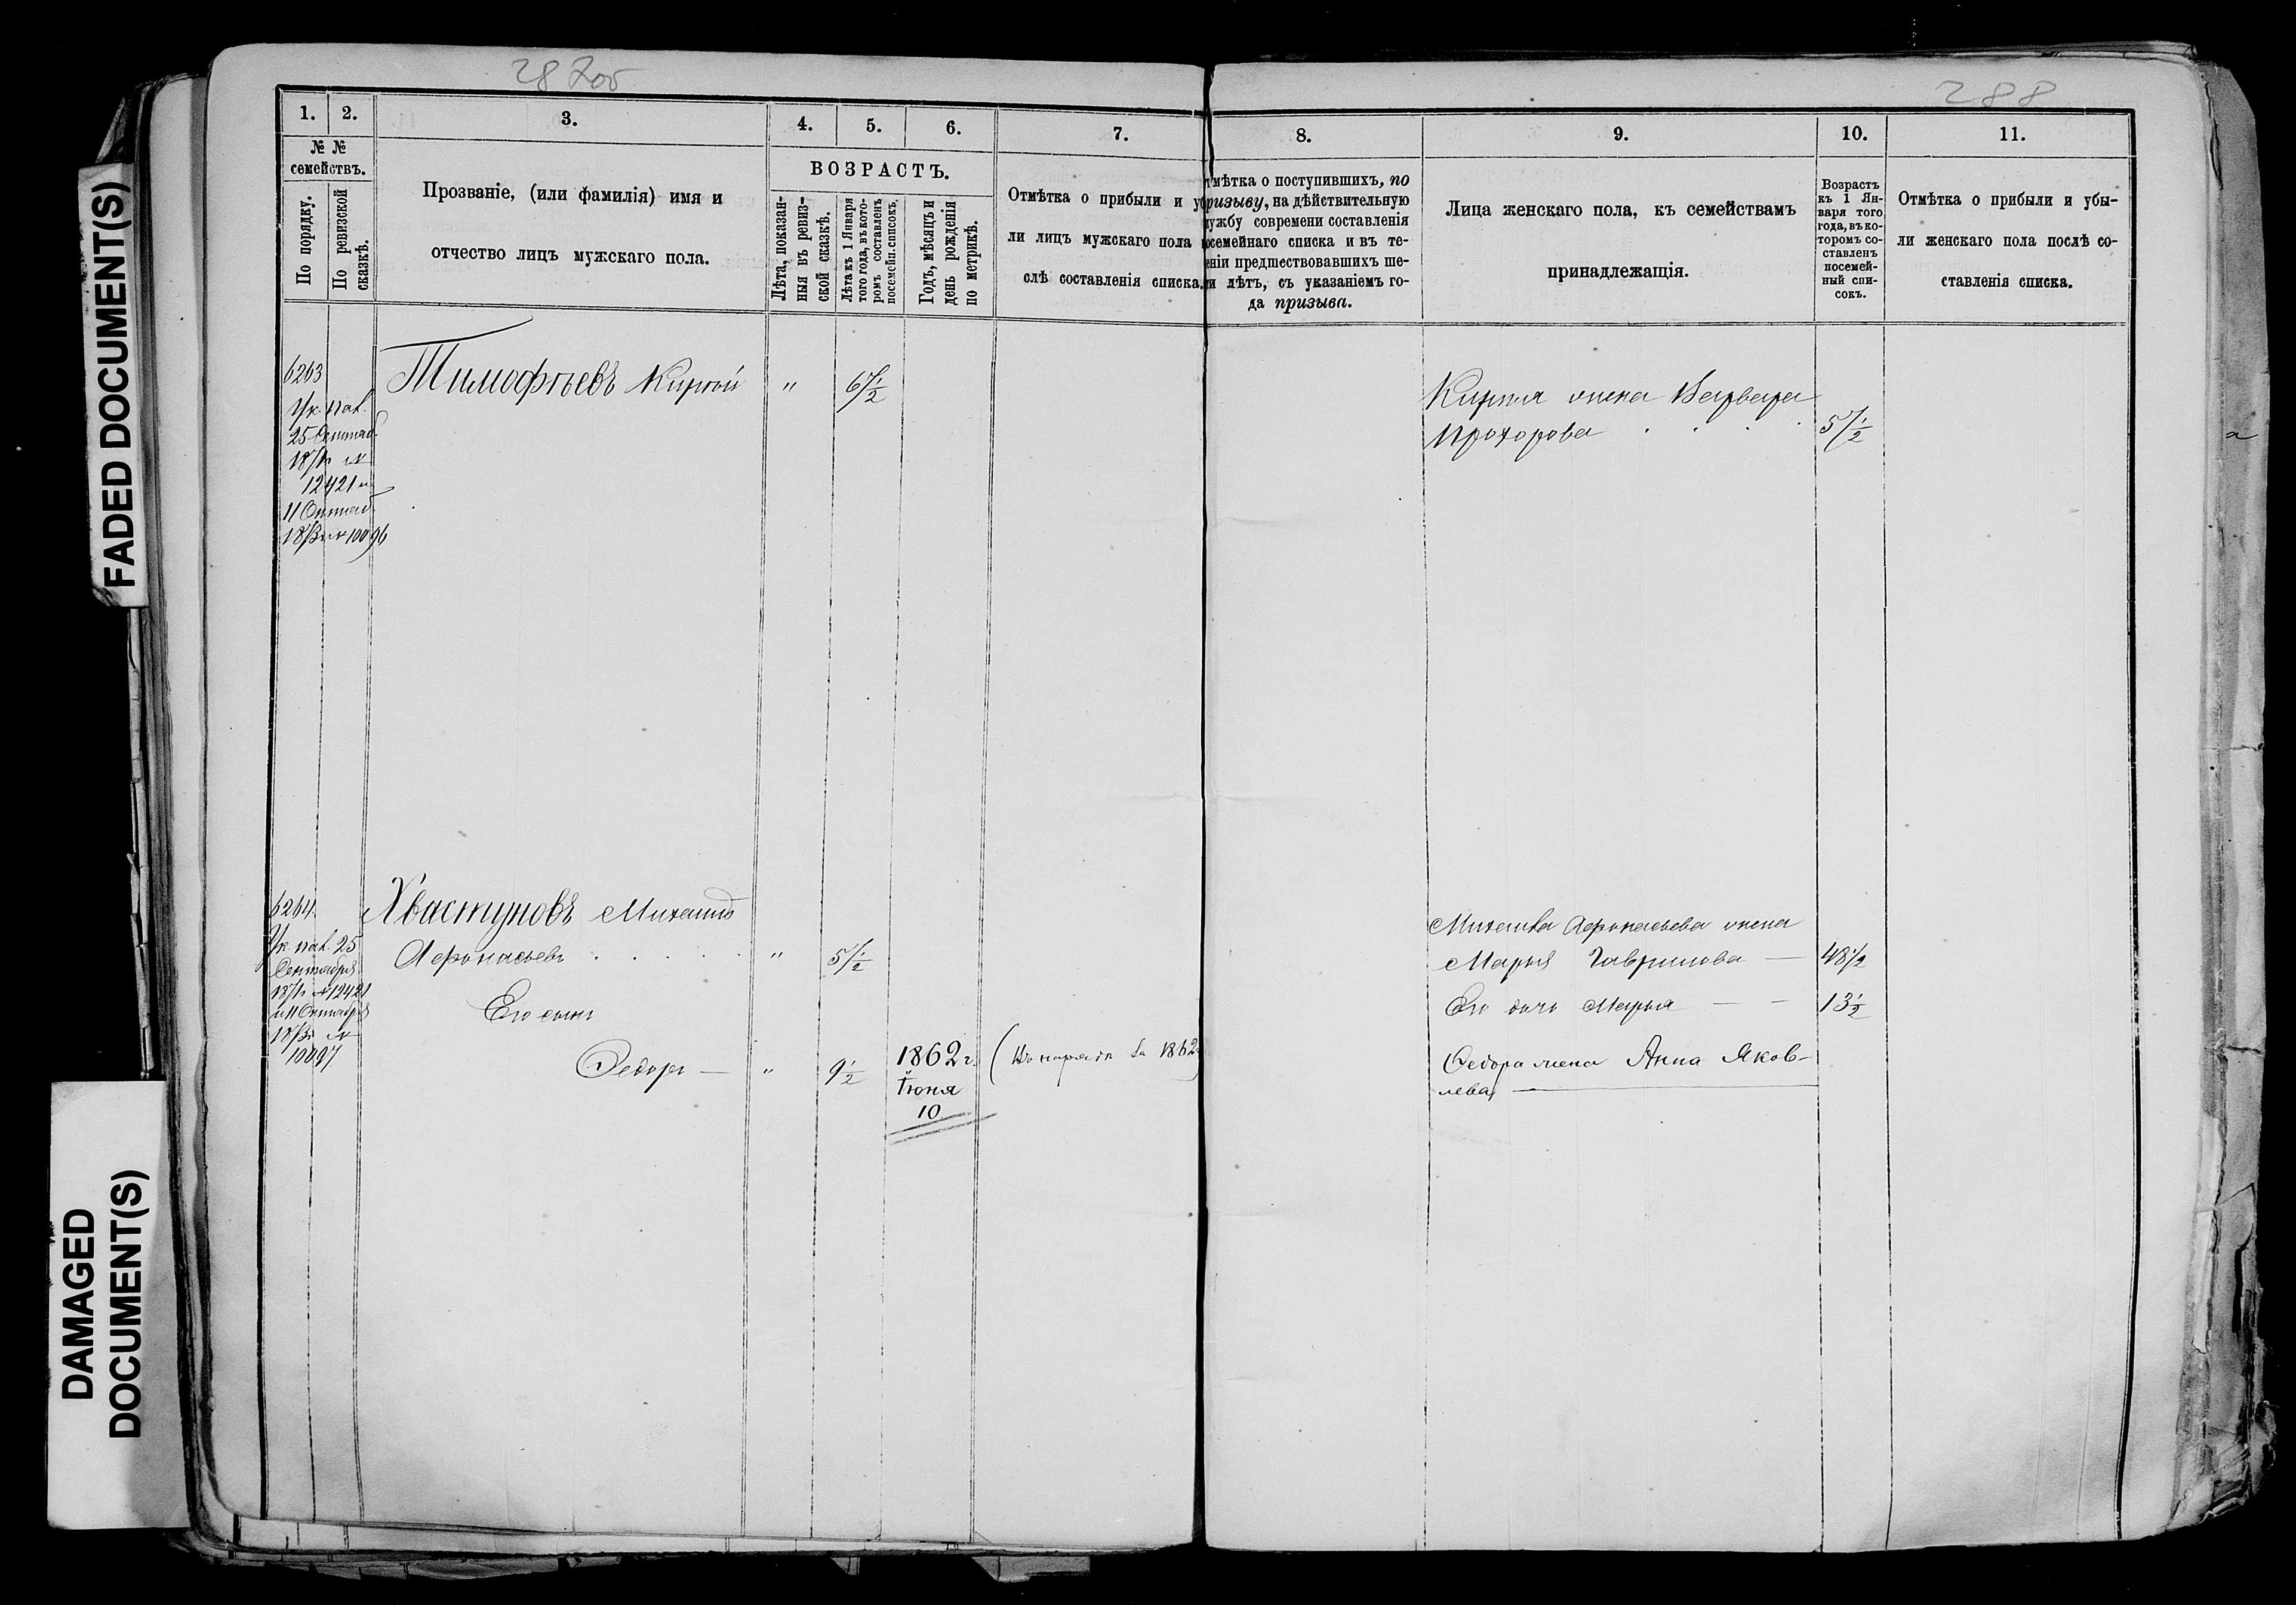 FADED DOCUMENT(S)
DAMAGED
DOCUMENT(S)
288
1. 2. 3. 4. 5. 6. 7.
№ №
семействъ.
По порядку.
По ревизской
сказкѣ.
Прозваніе, (или фамилія) имя и
отчество лицъ мужскаго пола.
ВОЗРАСТЪ.
Лѣта, показан-
ныя въ ревиз-
ской сказкѣ.
Лѣта къ 1 Января
того года, въ кото-
ромъ составленъ
посемейн. списокъ.
Годъ, мѣсяцъ и
день рожденія
по метрикѣ.
Отмѣтка о прибыли и у
ли лицъ мужскаго пола
слѣ составленія списка.
8. 9. 10. 11.
мѣтка о поступившихъ, по
призыву, на дѣйствительную
ужбу современи составленія
осемейнаго списка и въ те-
еніи предшествовавшихъ ше-
и лѣтъ, съ указаніемъ го-
да призыва.
Лица женскаго пола, къ семействамъ
принадлежащія.
Возрастъ
къ 1 Ян-
варя того
года, въ ко-
торомъ со-
ставленъ
посемей-
ный спи-
сокъ.
Отмѣтка о прибыли и убы-
ли женскаго пола послѣ со-
ставленія списка.
6263
Ук. пал.
25 Сентяб.
№
12421 и
11 Октяб.
№ 10096
Тимофѣевъ Кирилъ "
Кирила жена Варвара
Прохорова
6264.
Ук. пал. 25
Сентября
№ 12421
и 11 Октября
№
10097
Хвастуновъ Михаилъ
Афонасьевъ . . . . . "
Его сынъ
Федоръ — " 9½
1862 г.
Іюня
10
за 1862
Михаила Афонасьева жена
Марья Гаврилова — 48½
Его дочь Марья — — 13½
Федора жена Анна Яков-
лева